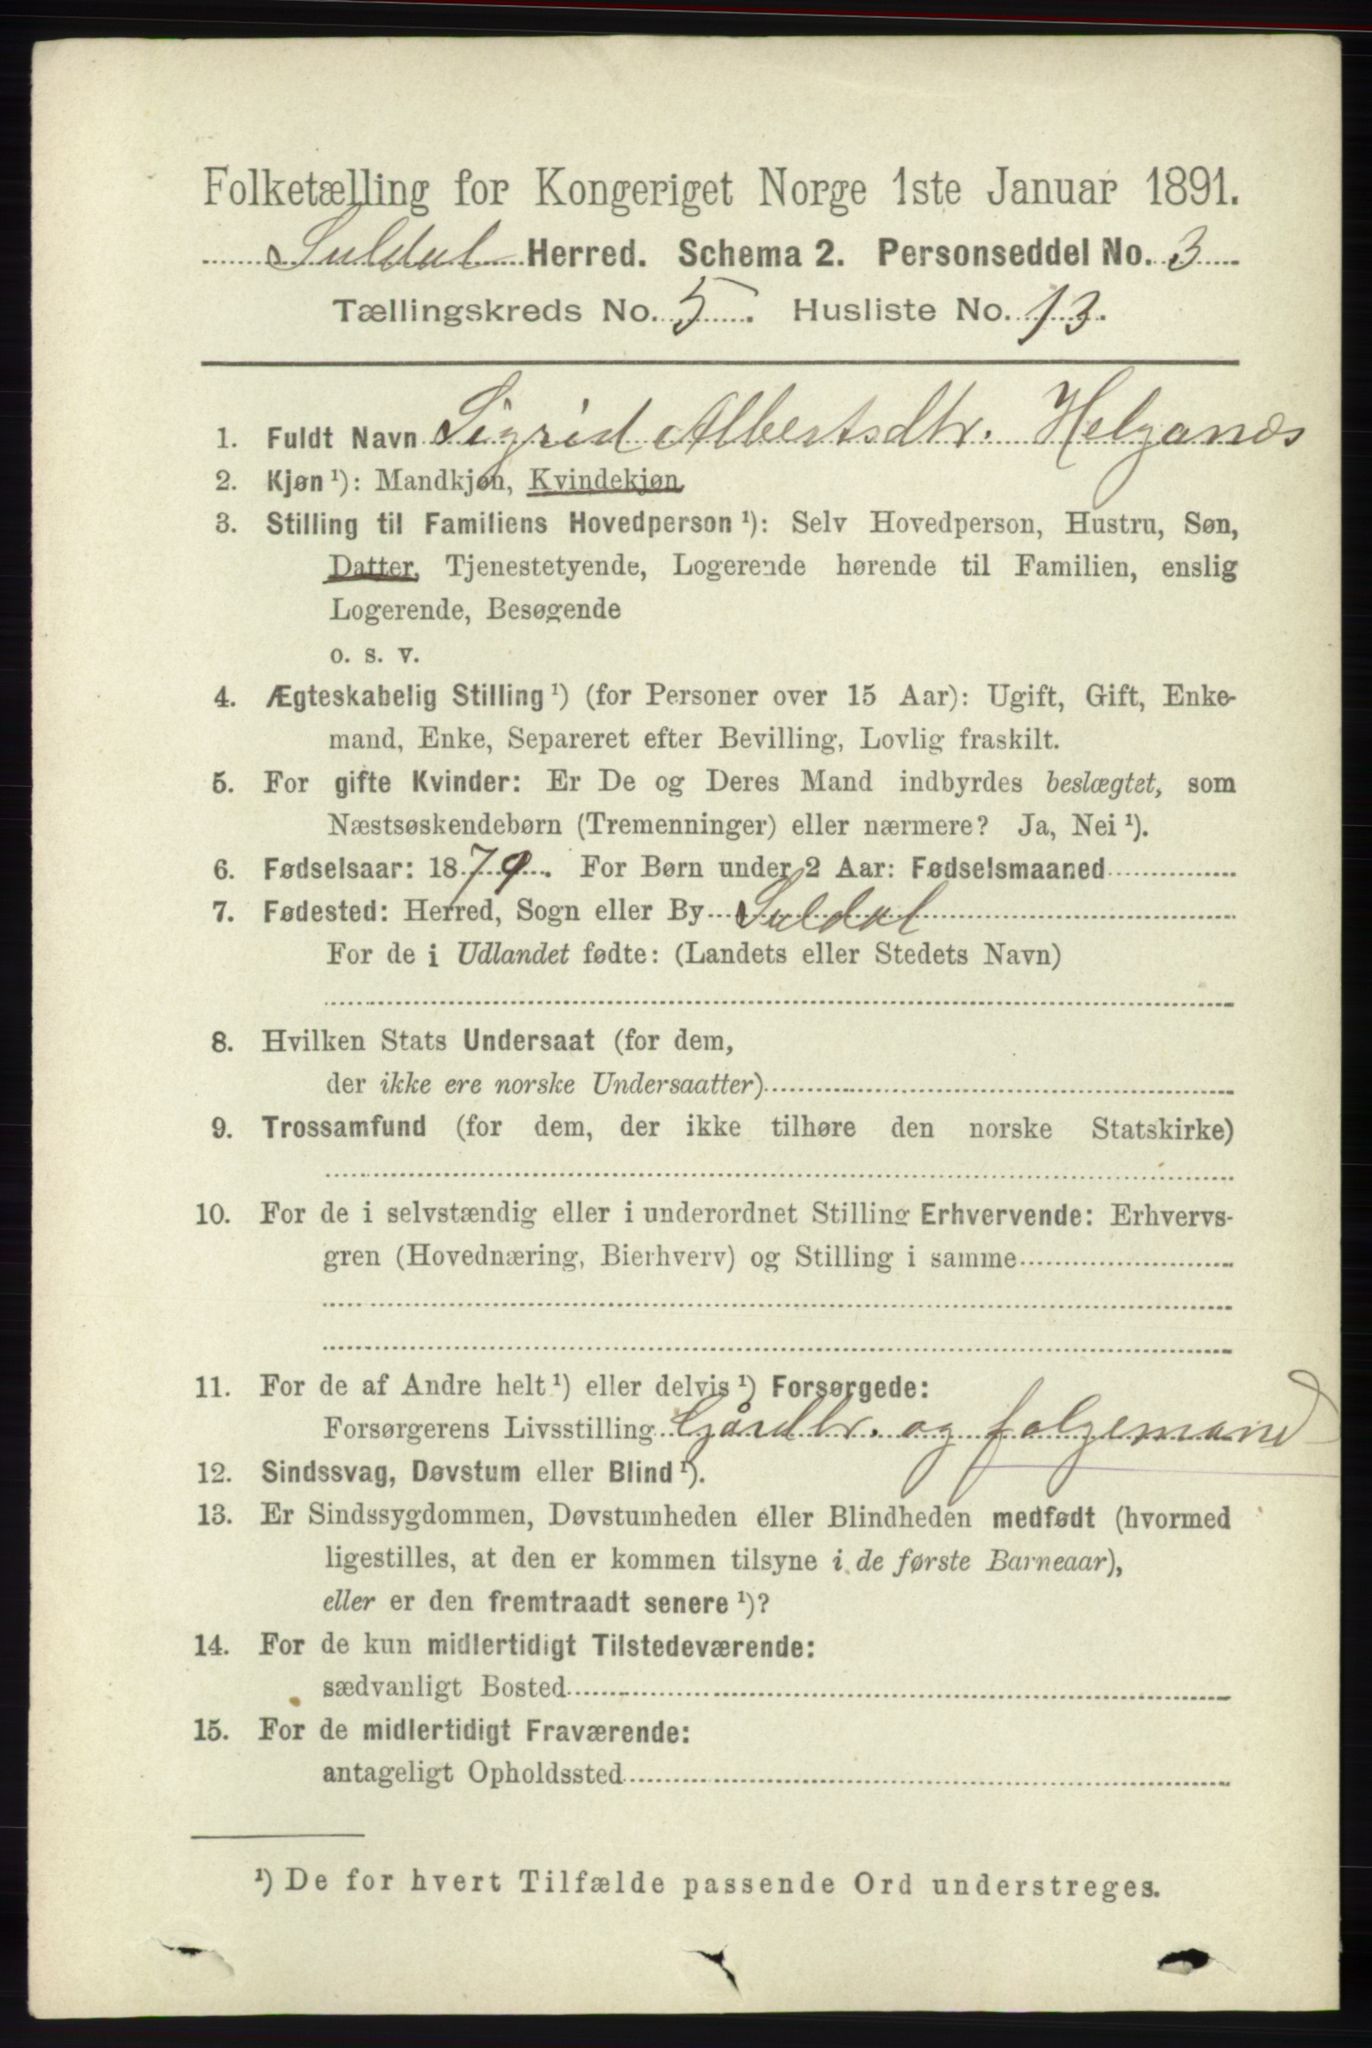 Folketælling for Kongeriget Norge 1ste Januar 1891.
Suldal Herred. Schema 2. Personseddel No. 3
Tællingskreds No. 5. Husliste No. 13.
1. Fuldt Navn Sigrid Albertsdtr. Helganæs
2. Kjøn ¹): Mandkjøn, Kvindekjøn
3. Stilling til Familiens Hovedperson ¹): Selv Hovedperson, Hustru, Søn,
Datter, Tjenestetyende, Logerende hørende til Familien, enslig
Logerende, Besøgende
o. s. v.
4. Ægteskabelig Stilling ¹) (for Personer over 15 Aar): Ugift, Gift, Enke-
mand, Enke, Separeret efter Bevilling, Lovlig fraskilt.
5. For gifte Kvinder: Er De og Deres Mand indbyrdes beslægtet, som
Næstsøskendebørn (Tremenninger) eller nærmere? Ja, Nei ¹).
6. Fødselsaar: 1879. For Børn under 2 Aar: Fødselsmaaned
7. Fødested: Herred, Sogn eller By Suldal
For de i Udlandet fødte: (Landets eller Stedets Navn)
8. Hvilken Stats Undersaat (for dem,
der ikke ere norske Undersaatter)
9. Trossamfund (for dem, der ikke tilhøre den norske Statskirke)
10. For de i selvstændig eller i underordnet Stilling Erhvervende: Erhvervs-
gren (Hovednæring, Bierhverv) og Stilling i samme
11. For de af Andre helt ¹) eller delvis ¹) Forsørgede:
Forsørgerens Livsstilling Gårdbr. og følgemand
12. Sindssvag, Døvstum eller Blind ¹).
13. Er Sindssygdommen, Døvstumheden eller Blindheden medfødt (hvormed
ligestilles, at den er kommen tilsyne i de første Barneaar),
eller er den fremtraadt senere ¹)?
14. For de kun midlertidigt Tilstedeværende:
sædvanligt Bosted
15. For de midlertidigt Fraværende:
antageligt Opholdssted
¹) De for hvert Tilfælde passende Ord understreges.